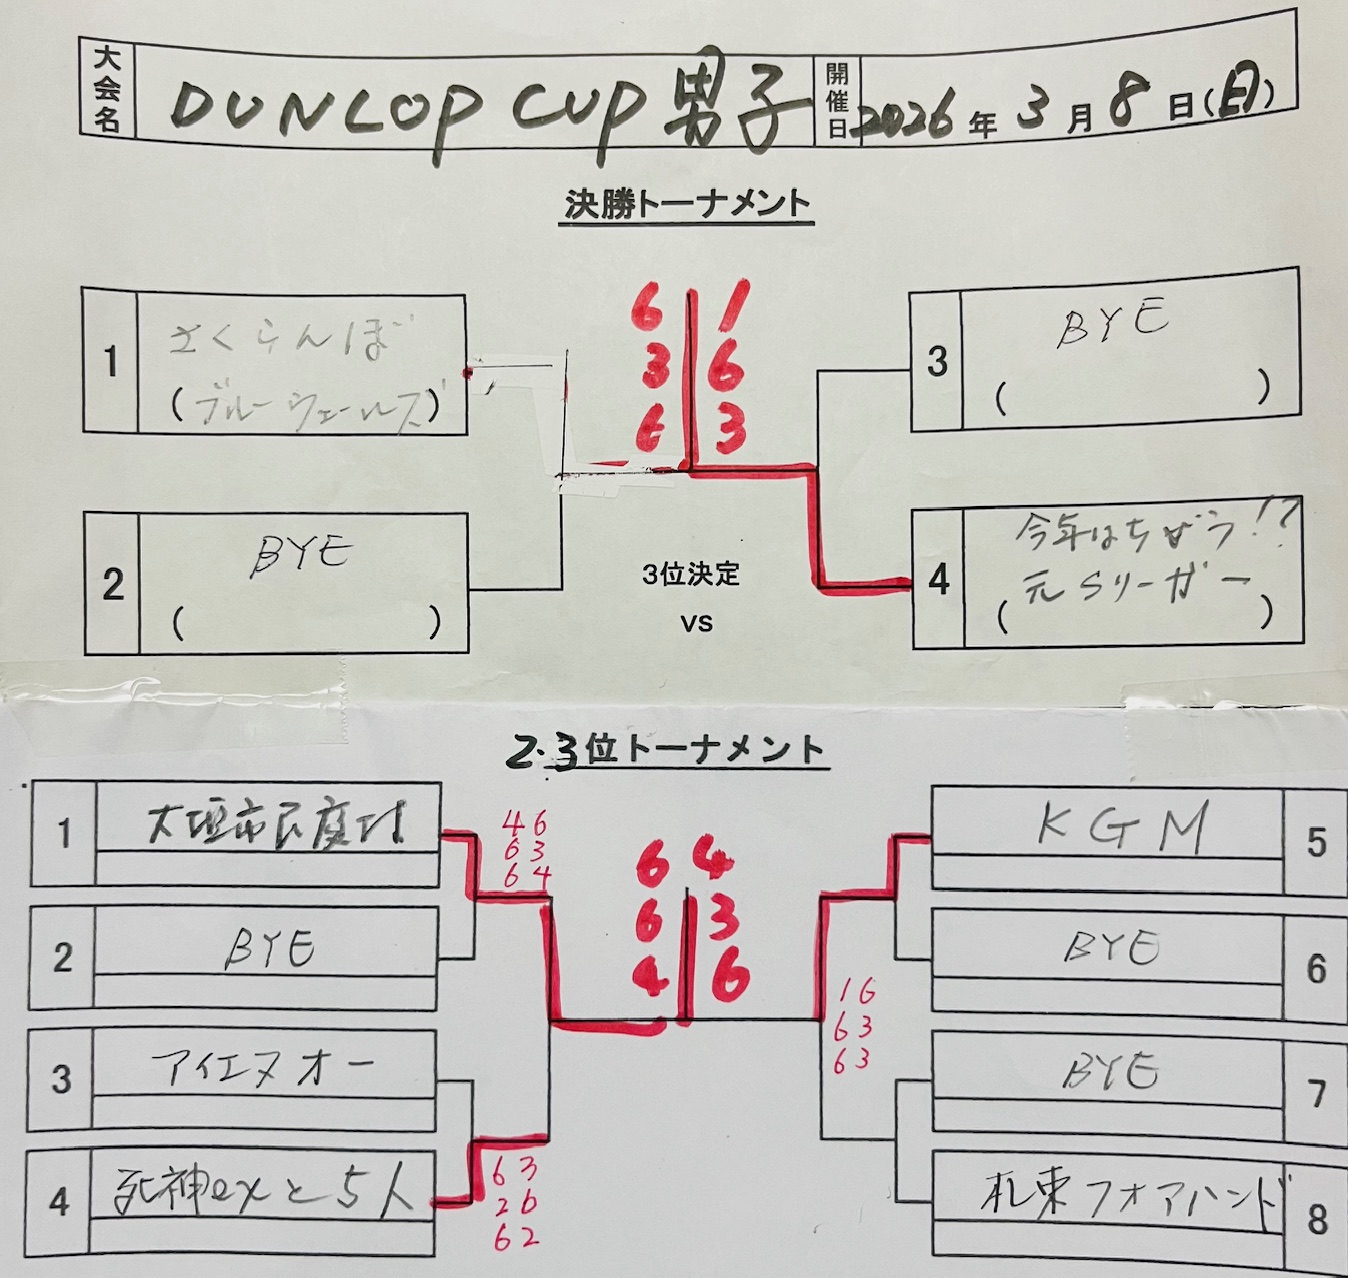 大会名
DUNLOP CUP 男子
開催日
2026年3月8日(日)
決勝トーナメント
1
さくらんぼ
(ブルーウェールズ)
2
BYE
( )
6 1
3 6
6 3
3位決定
vs
3
BYE
( )
4
今年はちがう!?
(元Sリーガー)
2.3位トーナメント
1
大垣市民庭球
2
BYE
3
アイエヌオー
4
死神exと5人
4 6
6 3
6 4
6 3
2 6
6 2
6 4
6 3
4 6
1 6
6 3
6 3
KGM
5
BYE
6
BYE
7
札東フォアハンド
8